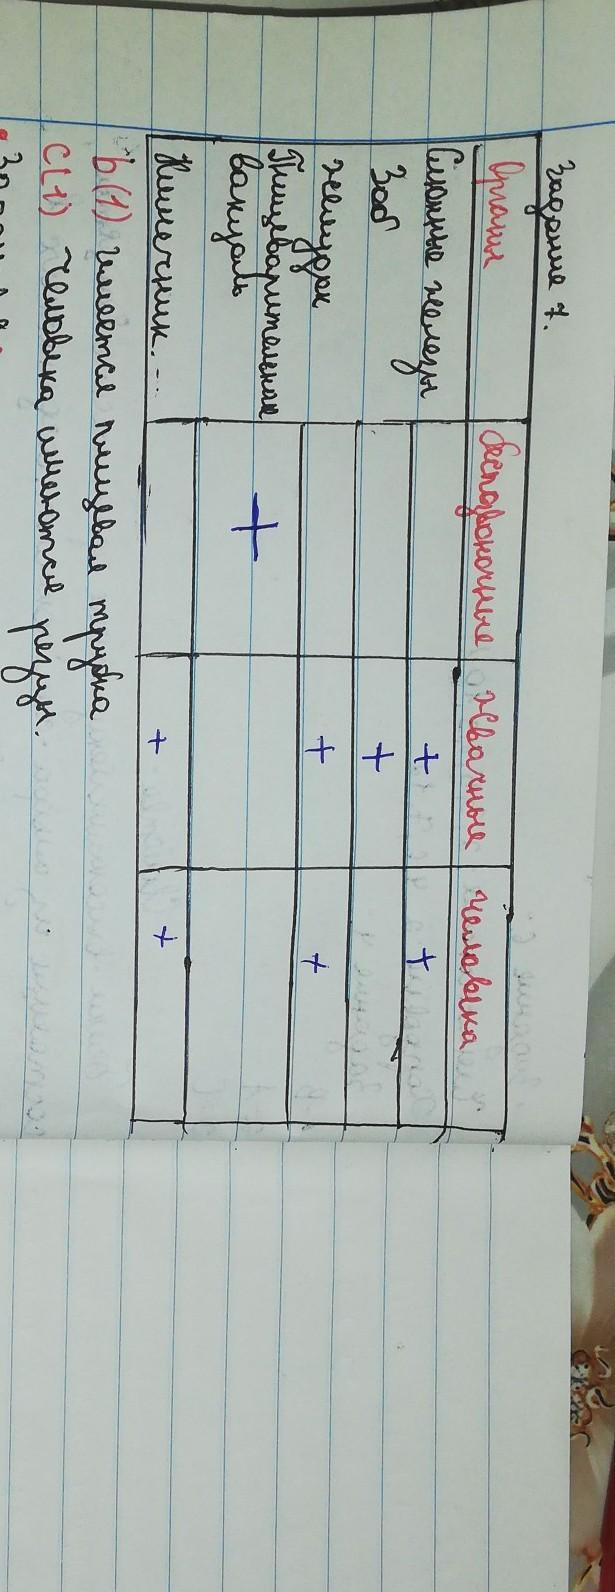 Задание 7.
Органы беспозвоночные Жвачные человека
Слюнные железы + +
Зоб +
желудок + +
Пищеварительная
вакуоль +
Кишечник... + +
b(1) имеется пищевая трубка
C(1) человека имеются резцы.